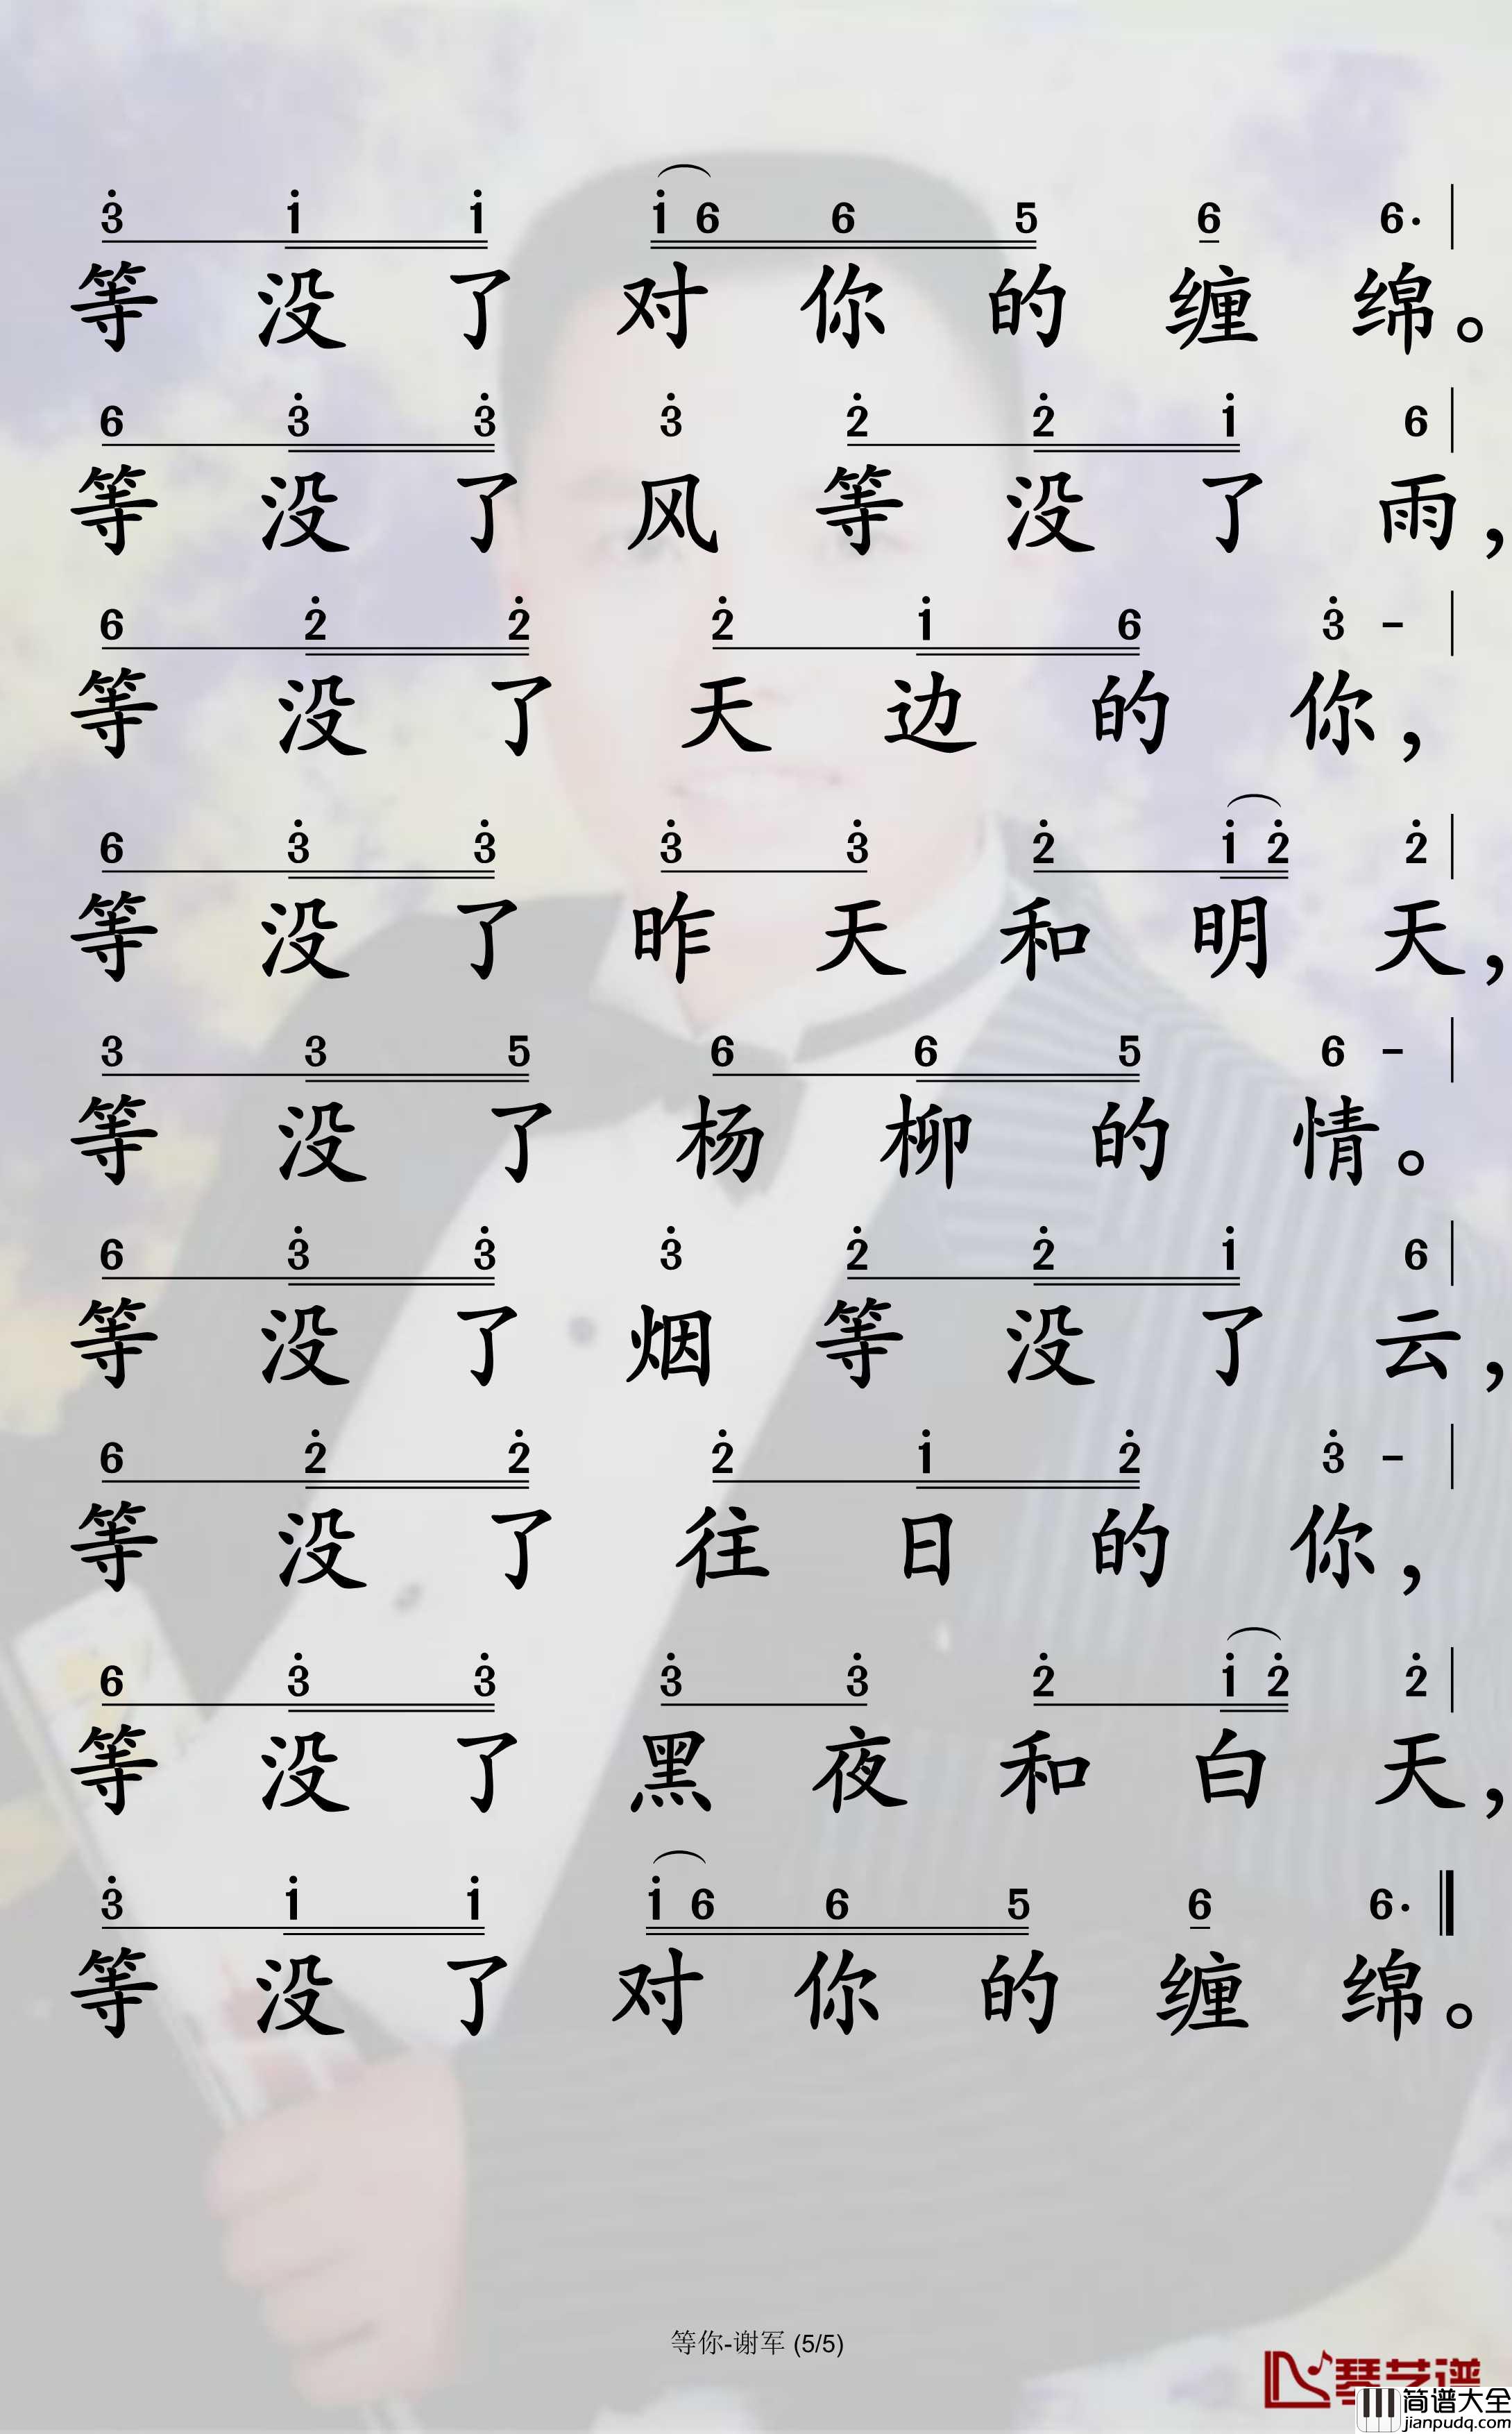 3̇ 1̇ 1̇ 1̇ 6 6 5 6 6·
等没了对你的缠绵。
6 3̇ 3̇ 3̇ 2̇ 2̇ 1̇ 6
等没了风等没了雨，
6 2̇ 2̇ 2̇ 1̇ 6 3̇ -
等没了天边的你，
6 3̇ 3̇ 3̇ 3̇ 2̇ 1̇ 2̇ 2̇
等没了昨天和明天，
3 3 5 6 6 5 6 -
等没了杨柳的情。
6 3̇ 3̇ 3̇ 2̇ 2̇ 1̇ 6
等没了烟等没了云，
6 2̇ 2̇ 2̇ 1̇ 2̇ 3̇ -
等没了往日的你，
6 3̇ 3̇ 3̇ 3̇ 2̇ 1̇ 2̇ 2̇
等没了黑夜和白天，
3̇ 1̇ 1̇ 1̇ 6 6 5 6 6·
等没了对你的缠绵。
等你-谢军 (5/5)
琴艺谱
简谱大全
jianpudq.com